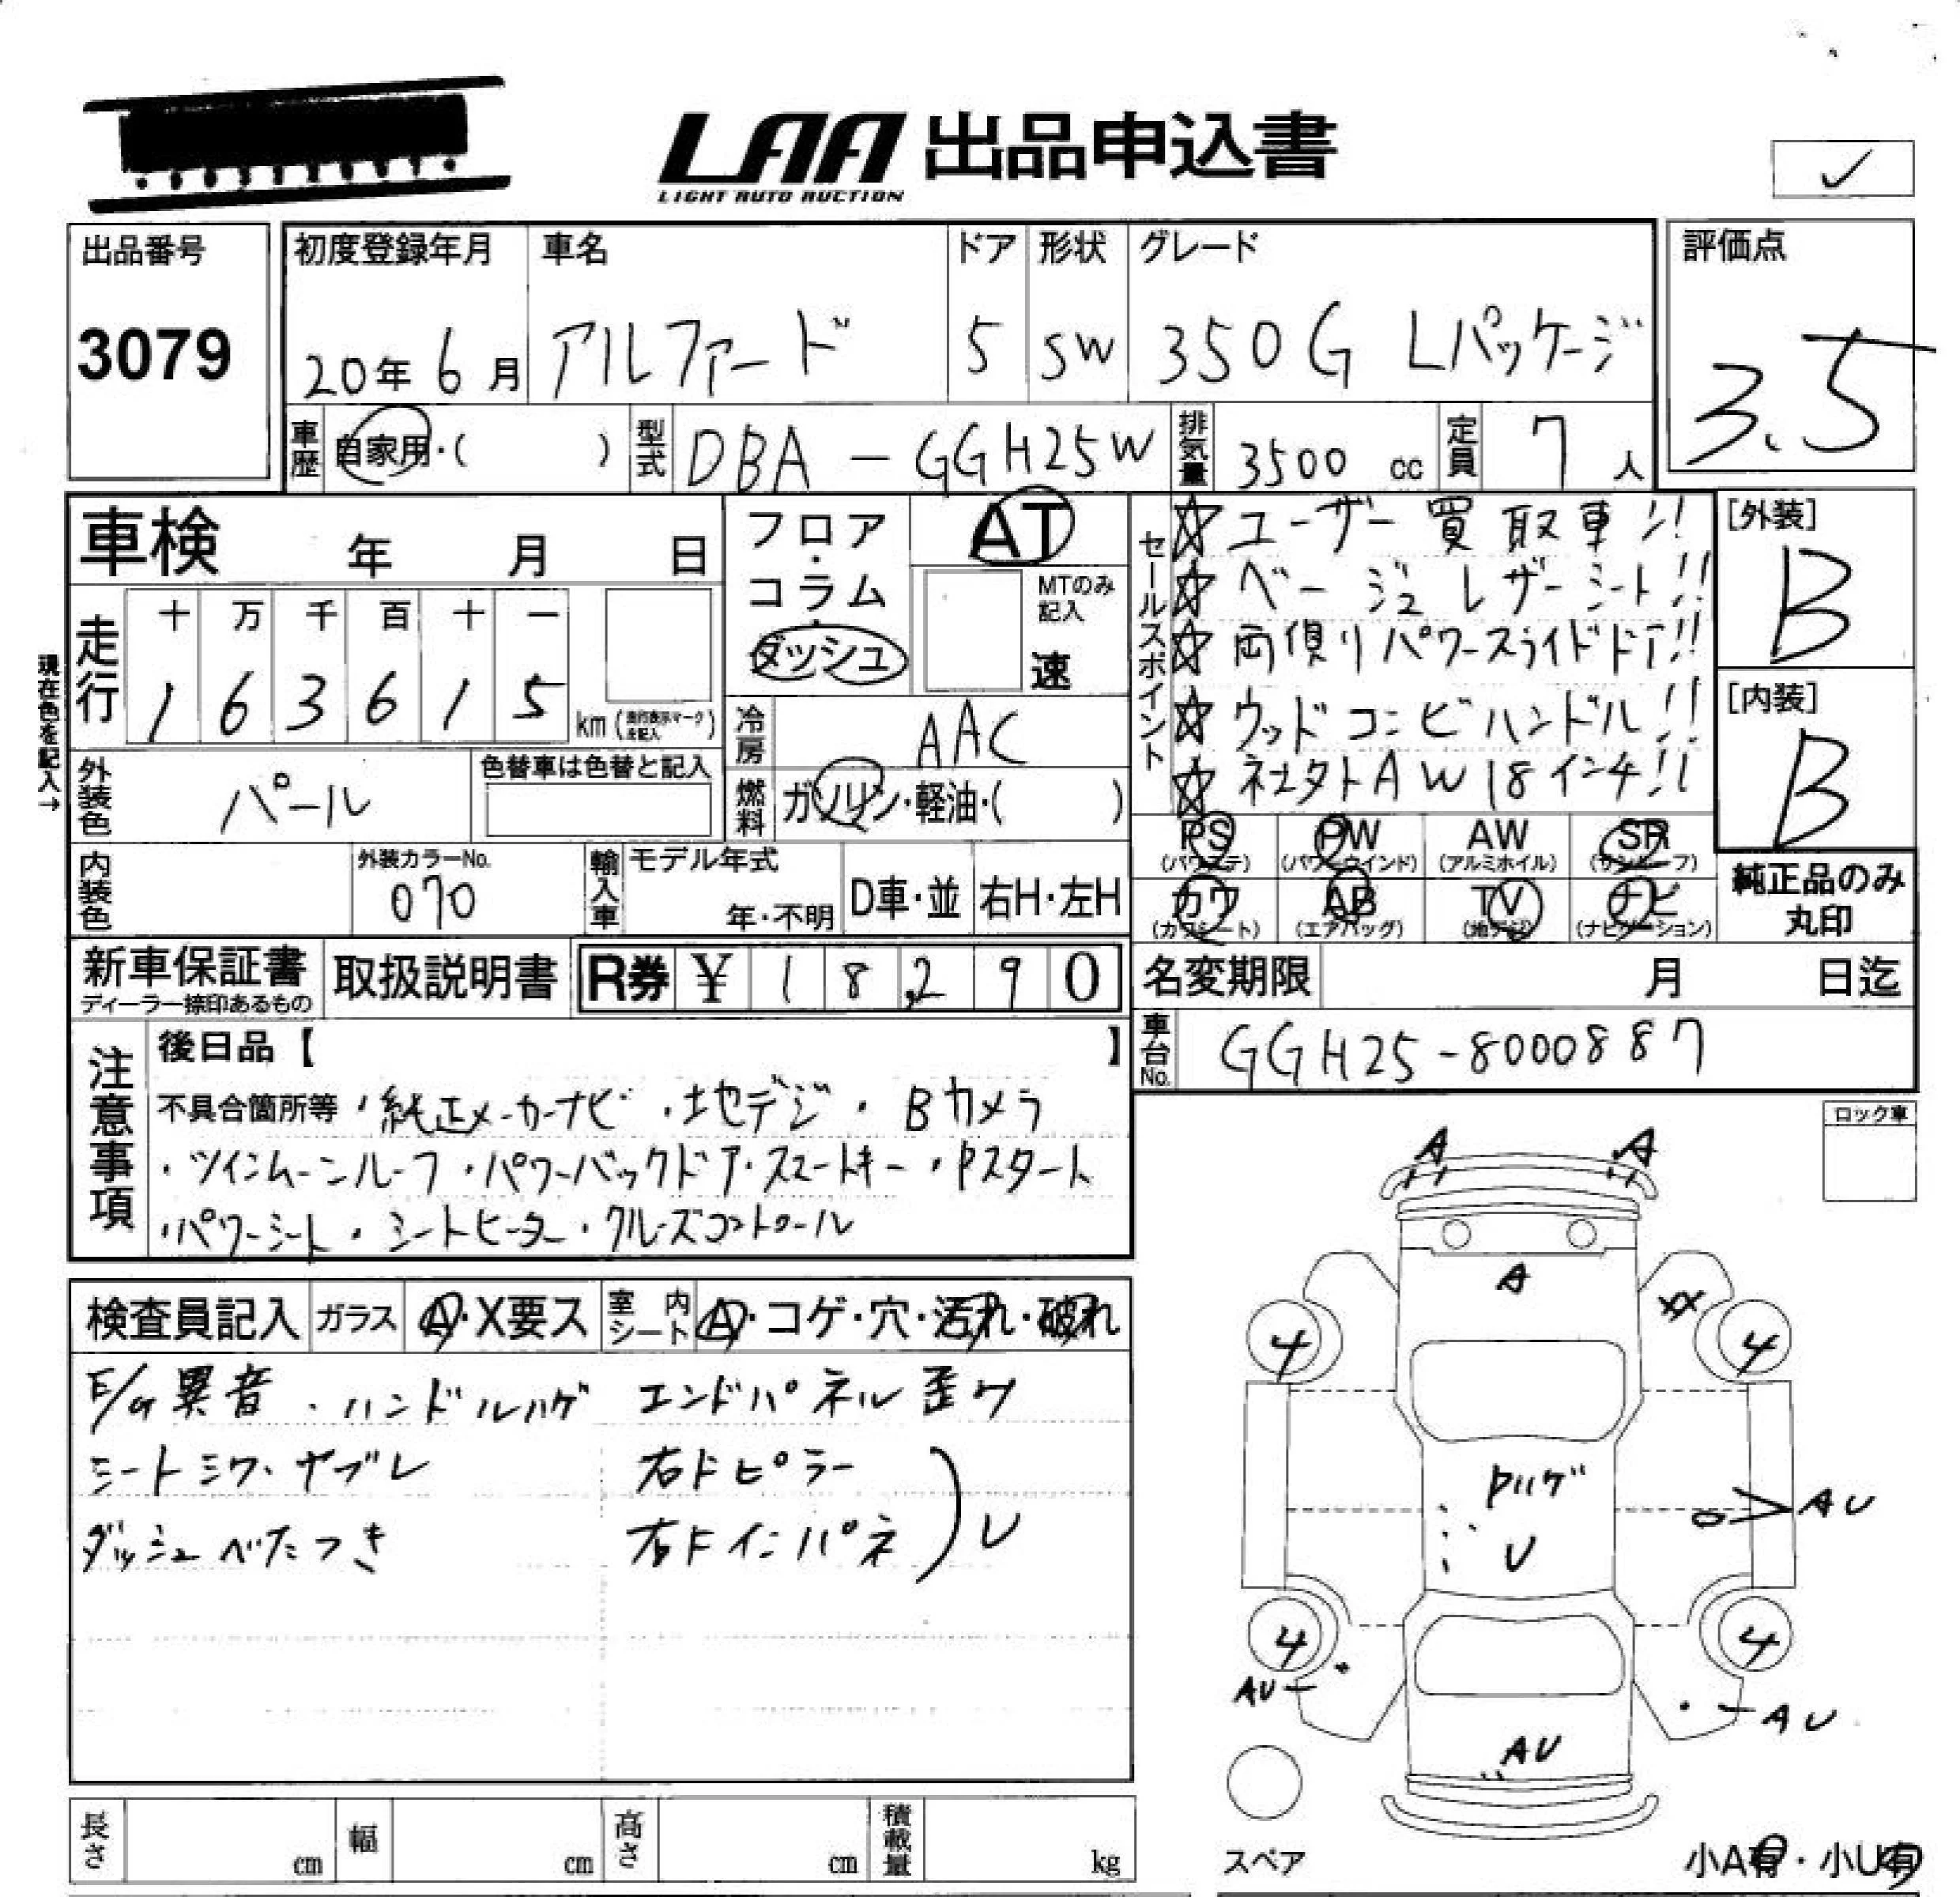 LAA 出品申込書
LIGHT AUTO AUCTION
✓
出品番号
3079
初度登録年月
20年 6月
車名
アルファード
ドア
5
形状
SW
グレード
350G Lパッケージ
評価点
3.5
車歴
自家用・( )
型式
DBA-GGH25W
排気量
3500 cc
定員
7 人
車検 年 月 日
フロア・コラム・ダッシュ
AT
MTのみ記入
速
現在色を記入→
走行
十 万 千 百 十 一
1 6 3 6 1 5 km
冷房
AAC
外装色
パール
色替車は色替と記入
燃料
ガソリン・軽油・( )
内装色
外装カラーNo.
070
輸入車
モデル年式
年・不明
D車・並
右H・左H
セールスポイント
☆ユーザー買取車!!
☆ベージュレザーシート!!
☆両側パワースライドドア!!
☆ウッドコンビハンドル!!
☆AW18インチ!!
[外装]
B
[内装]
B
PS (パワステ)
PW (パワーウインド)
AW (アルミホイル)
SR (サンルーフ)
カワ (カワシート)
AB (エアバッグ)
TV (地デジ)
ナビ (ナビゲーション)
純正品のみ丸印
新車保証書
ディーラー捺印あるもの
取扱説明書
R券 ¥ 18,290
名変期限 月 日迄
車台No.
GGH25-8000887
注意事項
後日品【 】
不具合箇所等 ・純正メーカーナビ・地デジ・Bカメラ
・ツインムーンルーフ・パワーバックドア・スマートキー・Pスタート
・パワーシート・シートヒーター・クルーズコントロール
ロック車
検査員記入
ガラス
A・X要ス
室内シート
A・コゲ・穴・汚れ・破れ
E/G異音・ハンドルハゲ
シートシワ・ヤブレ
ダッシュべたつき
エンドパネル歪
右Fピラー
右Fインパネ
U
A
A
A
4
4
Pハゲ
U
AU
4
4
AU
AU
AU
スペア
小A有・小U有
長さ cm
幅 cm
高さ cm
積載量 kg